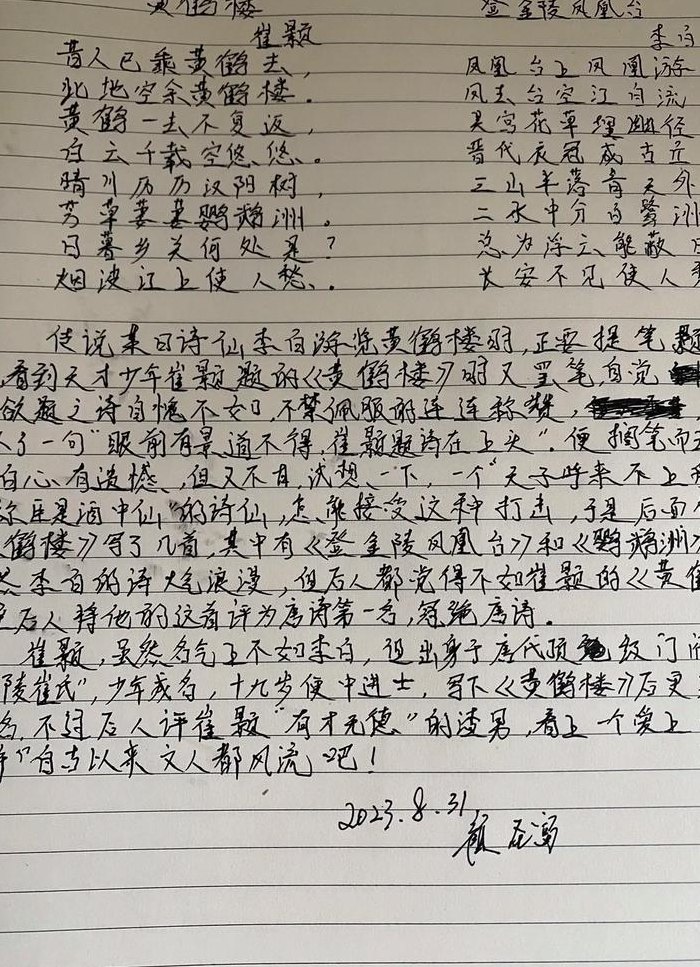 黄鹤楼 登金陵凤凰台
崔颢 李白
昔人已乘黄鹤去， 凤凰台上凤凰游
此地空余黄鹤楼． 凤去台空江自流
黄鹤一去不复返， 吴宫花草埋幽径
白云千载空悠悠。 晋代衣冠成古丘
晴川历历汉阳树， 三山半落青天外
芳草萋萋鹦鹉洲。 二水中分白鹭洲
日暮乡关何处是？ 总为浮云能蔽日
烟波江上使人愁．． 长安不见使人
传说某日诗仙李白游览黄鹤楼时，正要提笔题
看到天才少年崔颢题的《黄鹤楼》时又罢笔，自觉
欲题之诗自愧不如，不禁佩服的连连称赞，
了一句“眼前有景道不得，崔颢题诗在上头”．便搁笔而
白心有遗憾，但又不甘，试想一下，一个“天子呼来不上
称臣是酒中仙”的诗仙，怎能接受这种打击，于是后面
鹤楼》写了几首，其中有《登金陵凤凰台》和《鹦鹉洲》
然李白的诗大气浪漫，但后人都觉得不如崔颢的《黄鹤
后人将他的这首评为唐诗第一名，冠绝唐诗．
崔颢，虽然名气上不如李白，但出身于唐代顶级门
陵崔氏”，少年成名，十九岁便中进士，写下《黄鹤楼》后更
名，不过后人评崔颢“有才无德”的渣男，看上一个爱上
“自古以来文人都风流吧！
2023.8.31